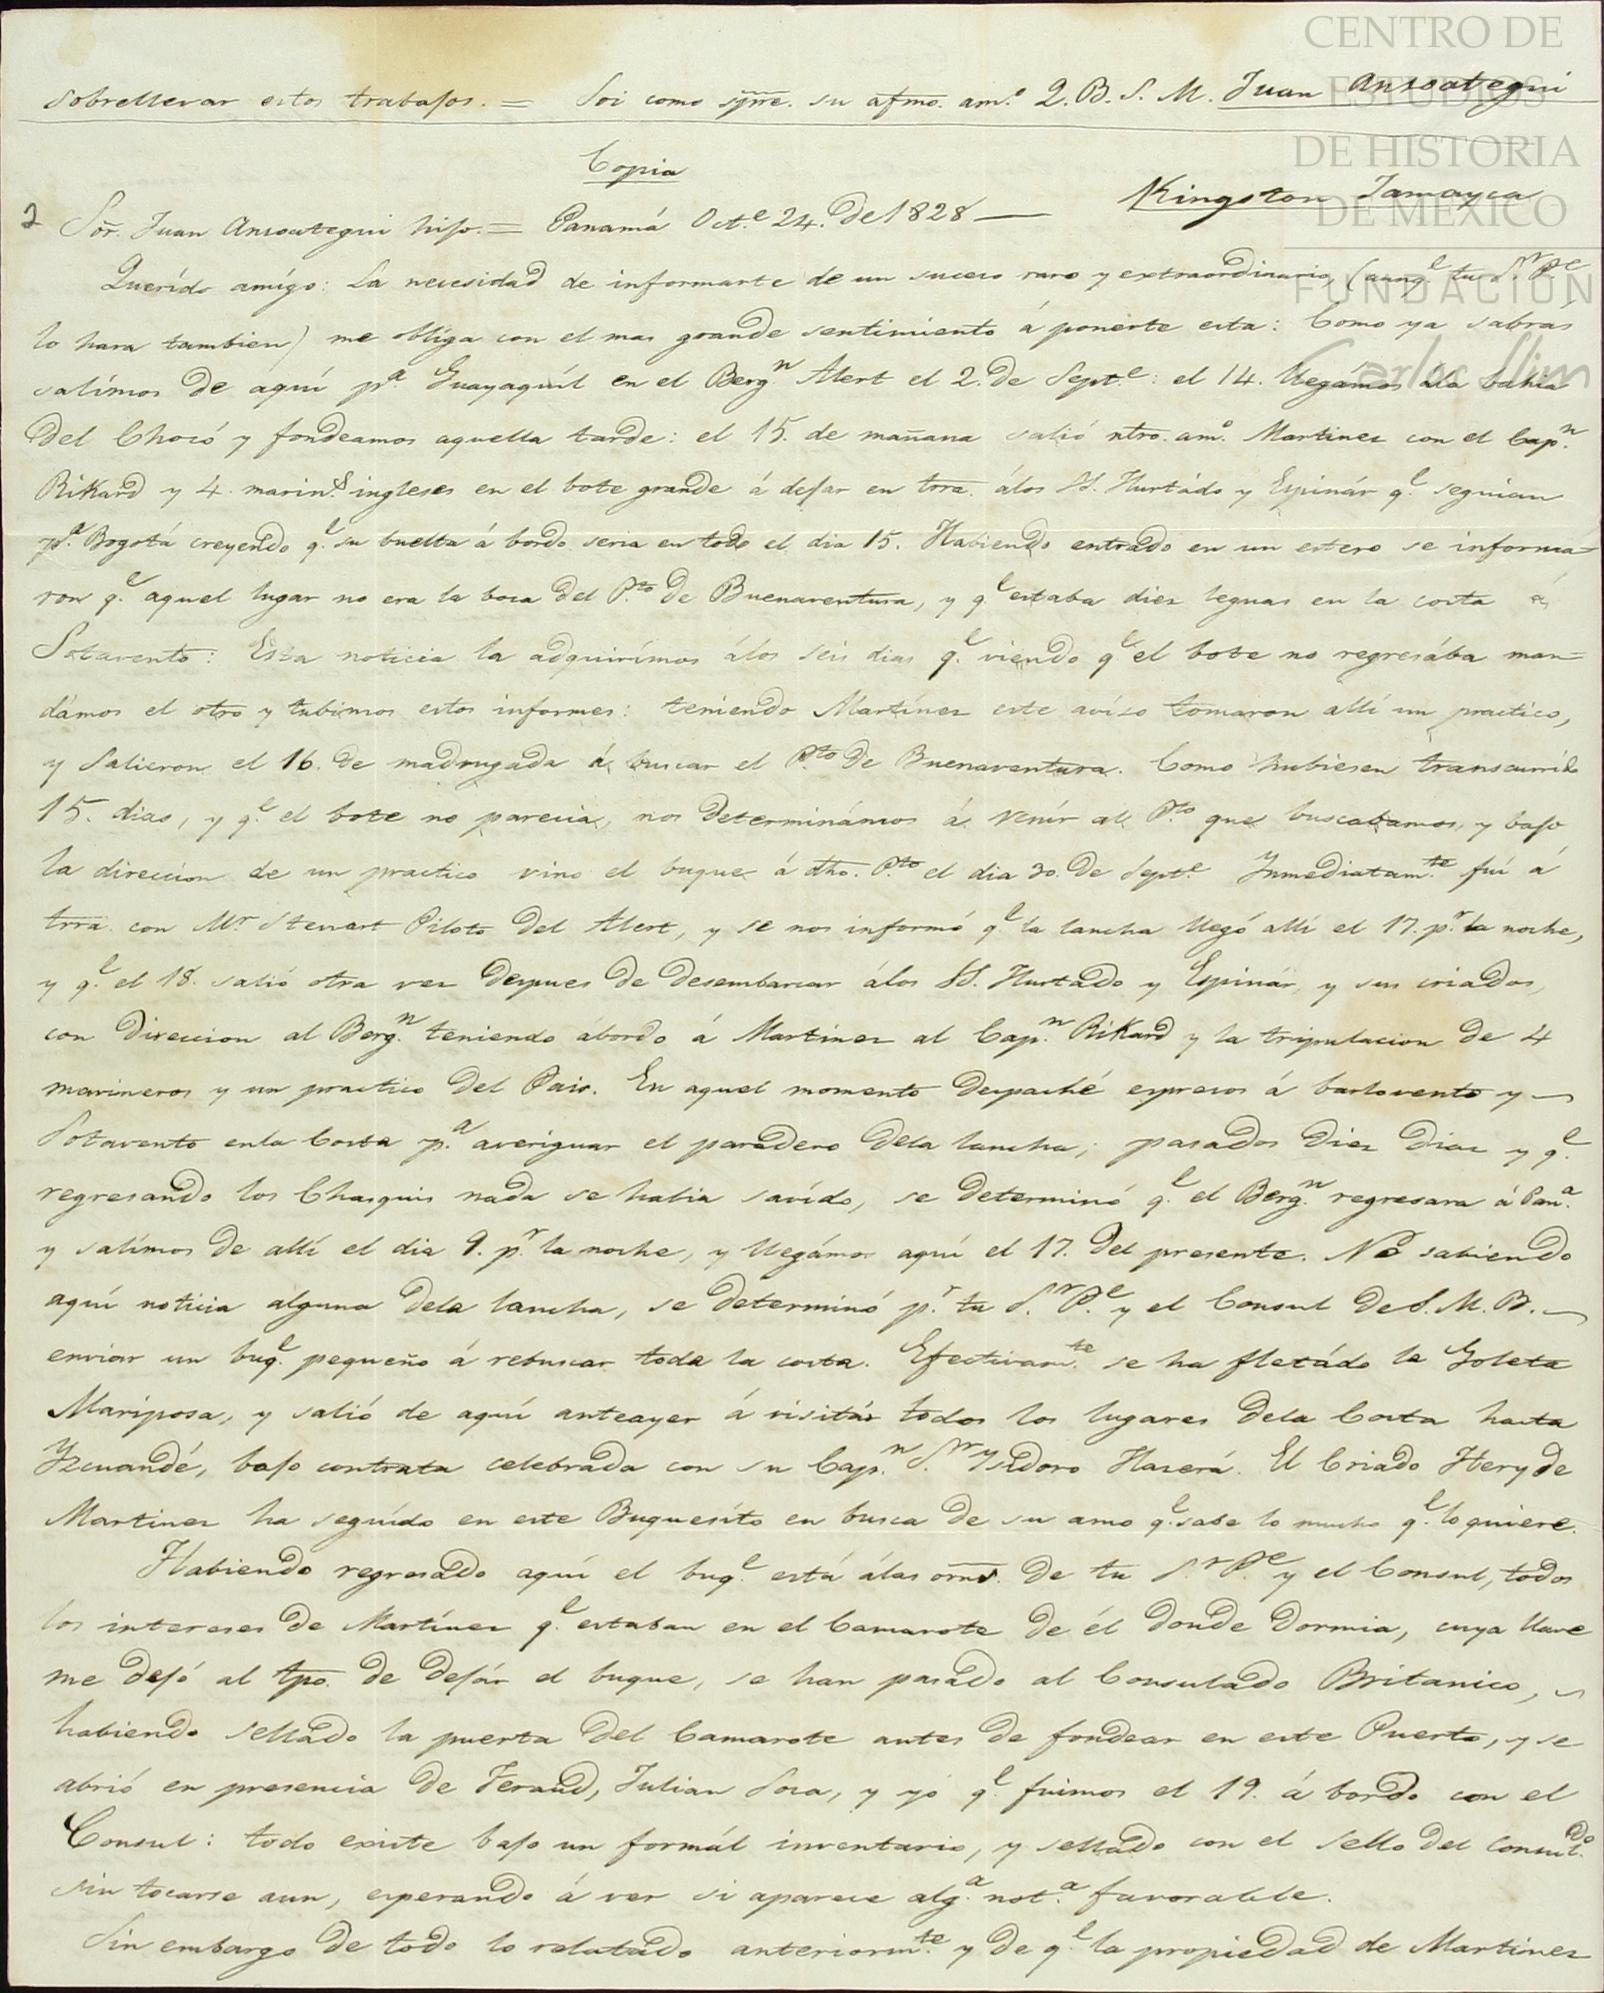 CENTRO DE
ESTUDIOS
DE HISTORIA
DE MÉXICO
FUNDACIÓN
Carlos Slim
sobrellevar estos trabajos. = Soi como spre. su afmo. am.o Q. B. S. M. Juan Ansoategui
Copia
Kingston Jamayca
2 Sor. Juan Ansoategui hijo. = Panamá Oct.e 24. de 1828 —
Querído amígo: La necesidad de informarte de un suceso raro y extraordinario, (aunq.e tu S.r P.e
lo hara tambien) me obliga con el mas grande sentimiento á ponerte esta: Como ya sabras
salímos de aquí p.a Guayaquíl en el Berg.n Alert el 2. de Sept.e: el 14. llegámos ala bahia
del Chocó y fondeamos aquella tarde: el 15. de mañana salió ntro. am.o Martinez con el Cap.n
Rikard y 4. marin.s ingleses en el bote grande á dejar en trra. álos SS. Hurtádo y Espinár q.e seguian
p.a Bogotá creyendo q.e su buelta á bordo seria en todo el dia 15. Habiendo entrado en un estero se informa=
ron q.e aquel lugar no era la boca del P.to de Buenaventura, y q.e estaba diez leguas en la costa á
Sotavento: Esta noticia la adquirímos álos seis dias q.e viendo q.e el bote no regresába man=
dámos el otro y tubimos estos informes: teniendo Martínez este aviso tomaron allí un practico,
y salieron el 16. de madrugada á buscar el P.to de Buenaventura. Como hubiesen transcurrido
15. dias, y q.e el bote no parecia, nos determinámos á venír al P.to que buscabamos, y bajo
la direccion de un practico vino el buque á dho. P.to el dia 30. de Sept.e Inmediatam.te fuí á
trra. con Mr Stewart Piloto del Alert, y se nos informó q.e la lancha llegó allí el 17. p.r la noche,
y q.e el 18. salió otra vez despues de desembarcar álos SS. Hurtado y Espinár, y sus criados,
con direccion al Berg.n teniendo ábordo á Martinez al Cap.n Rikard y la tripulacion de 4
marineros y un practico del Pais. En aquel momento despaché espresos á barlovento y
Sotavento enla Costa p.a averiguar el paradero dela lancha; pasados diez dias y q.e
regresando los Chasquis nada se habia savído, se determinó q.e el Berg.n regresara á Pan.a
y salímos de allí el dia 9. p.r la noche, y llegámos aquí el 17. del presente. No sabiendo
aquí noticia alguna dela lancha, se determinó p.r tu S.r P.e y el Consul de S. M. B.
enviar un buq.e pequeño á rebuscar toda la costa. Efectivam.te se ha fletádo la Goleta
Mariposa, y salió de aquí anteayer á visitár todos los lugares dela Costa hasta
Yzcuandé, bajo contrata celebrada con su Cap.n S.r Ysidoro Hazerá. El Criado Hery de
Martinez ha seguído en este Buquesíto en busca de su amo q.e sabe lo mucho q.e lo quiere.
Habiendo regresado aquí el buq.e está álas orns. de tu S.r P.e y el Consul, todos
los intereses de Martínez q.e estaban en el Camarote de él donde dormia, cuya llave
me dejó al tpo. de dejár el buque, se han pasado al Consulado Britanico,
habiendo sellado la puerta del Camarote antes de fondear en este Puerto, y se
abrió en presencia de Feraud, Julian Sosa, y yó q.e fuimos el 19. á bordo con el
Consul: todo existe bajo un formál inventario, y sellado con el sello del Consul.do
sin tocarse aun, esperando á ver si aparece alg.a not.a favorable.
Sin embargo de todo lo relatado anteriorm.te y de q.e la propiedad de Martinez